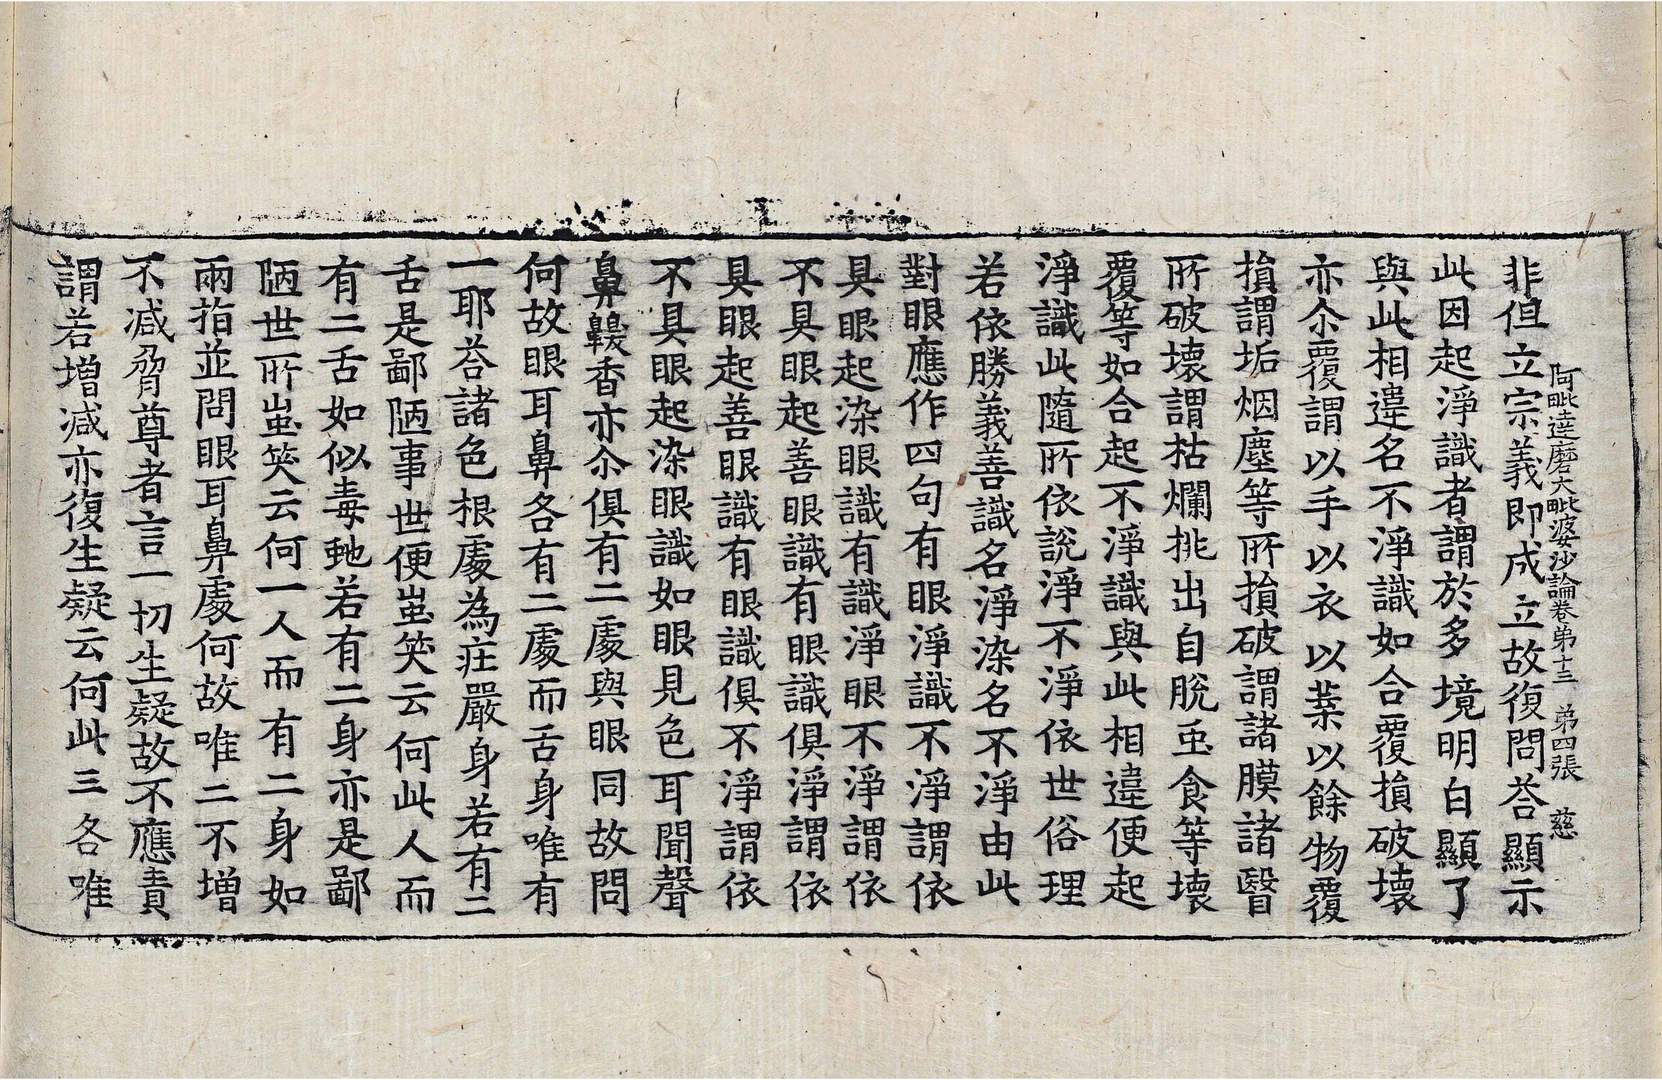 阿毗達磨大毗婆沙論卷第十三 第四張 慈
非但立宗義即成立故復問荅顯示
此因起淨識者謂於多境明白顯了
與此相違名不淨識如合覆損破壞
亦尒覆謂以手以衣以葉以餘物覆
損謂垢烟塵等所損破謂諸膜諸翳
所破壞謂枯爛挑出自脫虫食等壞
覆等如合起不淨識與此相違便起
淨識此隨所依說淨不淨依世俗理
若依勝義善識名淨染名不淨由此
對眼應作四句有眼淨識不淨謂依
具眼起染眼識有識淨眼不淨謂依
不具眼起善眼識有眼識俱淨謂依
具眼起善眼識有眼識俱不淨謂依
不具眼起染眼識如眼見色耳聞聲
鼻齅香亦尒俱有二處與眼同故問
何故眼耳鼻各有二處而舌身唯有
一耶荅諸色根處為莊嚴身若有二
舌是鄙陋事世便蚩笑云何此人而
有二舌如似毒虵若有二身亦是鄙
陋世所蚩笑云何一人而有二身如
兩指並問眼耳鼻處何故唯二不增
不減脅尊者言一切生疑故不應責
謂若增減亦復生疑云何此三各唯